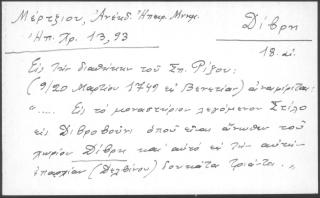 Μέρτζιου, Ἀνέκδ. Ἠπειρ. Μνημ.
Δίβρη
Ἠπ. Χρ. 13, 93
18. αἰ.
Εἰς τὴν διαθήκην τοῦ Σπ. Ρίζου:
(9/20 Μαρτίου 1749 ἐν Βενετίᾳ) ἀναφέρεται:
"..... Εἰς τὸ μοναστήριον λεγόμενον Στύλο
εἰς Διβροβούνι ὁποῦ εἶναι ἄνωθεν τοῦ
χωρίου Δίβρη καὶ αὐτὸ εἰς τὴν αὐτὴν
ἐπαρχίαν (Δελβίνου) δουκάτα τριάντα. "